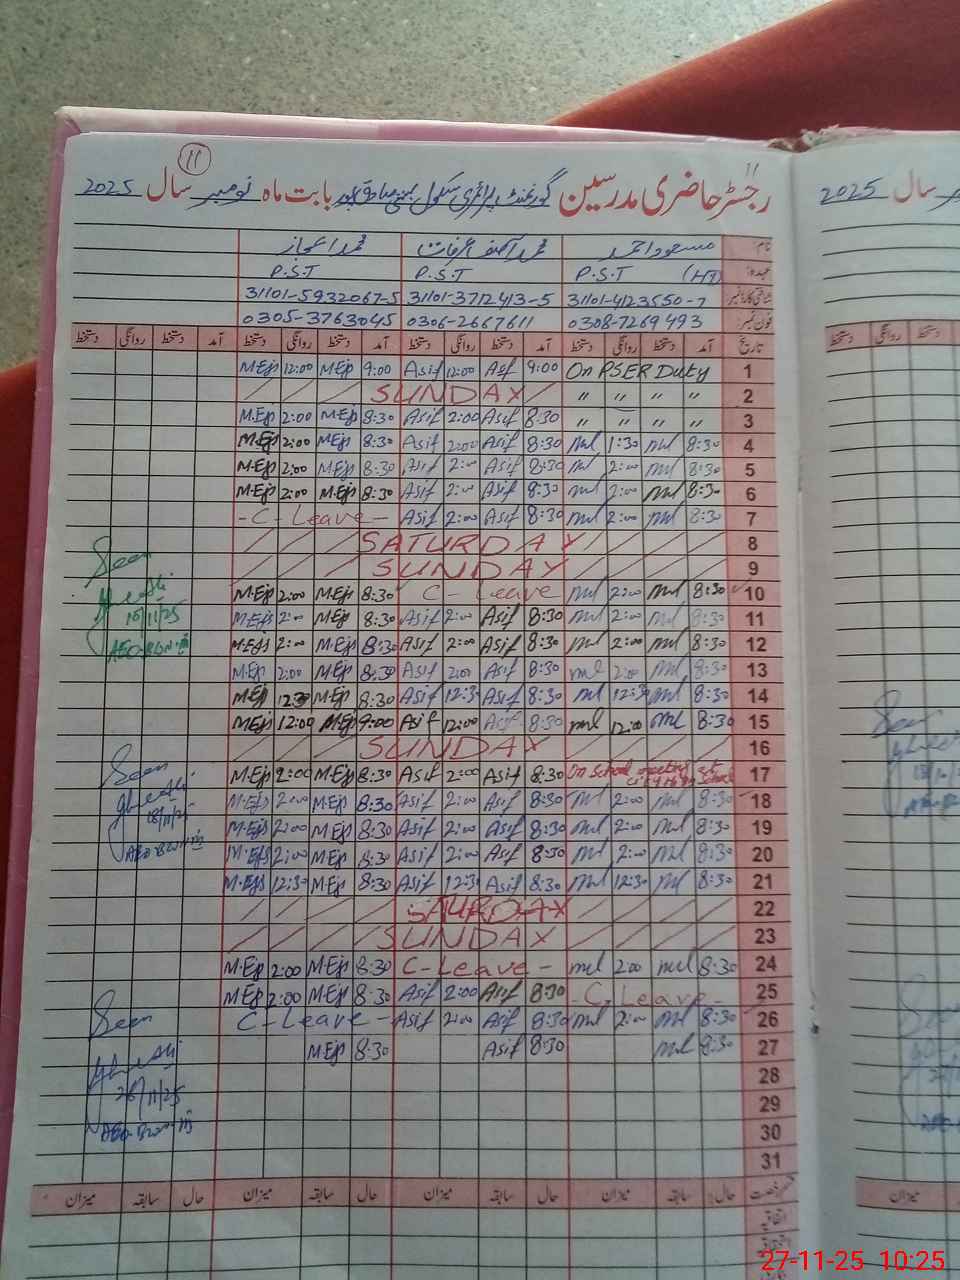 11
11
رجسٹر حاضری مدرسین گورنمنٹ پرائمری سکول بابت ماہ نومبر سال 2025
نام: مسعود احمد محمد آصف عرفات محمد اعجاز
عہدہ: P.S.T (HT) P.S.T P.S.T
شناختی کارڈ نمبر 31101-4123550-7 31101-3712413-5 31101-5932067-5
فون نمبر: 0308-7269493 0306-2667611 0305-3763045
تاریخ آمد دستخط روانگی دستخط آمد دستخط روانگی دستخط آمد دستخط روانگی دستخط آمد دستخط روانگی دستخط
M.Ejs 12:00 M.Ejs 9:00 Asif 12:00 Asif 9:00 On PSER Duty 1
SUNDAY " " " " 2
M.Ejs 2:00 M.Ejs 8:30 Asif 2:00 Asif 8:30 " " " " 3
M.Ejs 2:00 M.Ejs 8:30 Asif 2:00 Asif 8:30 ml 1:30 ml 8:30 4
M.Ejs 2:00 M.Ejs 8:30 Asif 2:00 Asif 8:30 ml 2:00 ml 8:30 5
M.Ejs 2:00 M.Ejs 8:30 Asif 2:00 Asif 8:30 ml 2:00 ml 8:30 6
- C - Leave - Asif 2:00 Asif 8:30 ml 2:00 ml 8:30 7
SATURDAY 8
SUNDAY 9
M.Ejs 2:00 M.Ejs 8:30 C - Leave ml 2:00 ml 8:30 10
M.Ejs 2:00 M.Ejs 8:30 Asif 2:00 Asif 8:30 ml 2:00 ml 8:30 11
M.Ejs 2:00 M.Ejs 8:30 Asif 2:00 Asif 8:30 ml 2:00 ml 8:30 12
M.Ejs 2:00 M.Ejs 8:30 Asif 2:00 Asif 8:30 ml 2:00 ml 8:30 13
M.Ejs 12:30 M.Ejs 8:30 Asif 12:30 Asif 8:30 ml 12:30 ml 8:30 14
M.Ejs 12:00 M.Ejs 9:00 Asif 12:00 Asif 8:30 ml 12:00 ml 8:30 15
SUNDAY 16
M.Ejs 2:00 M.Ejs 8:30 Asif 2:00 Asif 8:30 On School 17
M.Ejs 2:00 M.Ejs 8:30 Asif 2:00 Asif 8:30 ml 2:00 ml 8:30 18
M.Ejs 2:00 M.Ejs 8:30 Asif 2:00 Asif 8:30 ml 2:00 ml 8:30 19
M.Ejs 2:00 M.Ejs 8:30 Asif 2:00 Asif 8:30 ml 2:00 ml 8:30 20
M.Ejs 12:30 M.Ejs 8:30 Asif 12:30 Asif 8:30 ml 12:30 ml 8:30 21
SATURDAY 22
SUNDAY 23
M.Ejs 2:00 M.Ejs 8:30 C - Leave - ml 2:00 ml 8:30 24
M.Ejs 2:00 M.Ejs 8:30 Asif 2:00 Asif 8:30 - C - Leave - 25
C - Leave - Asif 2:00 Asif 8:30 ml 2:00 ml 8:30 26
M.Ejs 8:30 Asif 8:30 ml 8:30 27
28
29
30
31
حال سابقہ میزان حال سابقہ میزان حال سابقہ میزان حال سابقہ میزان
اتفاقیہ
Seen
AEO
Seen
18/11/25
AEO
Seen
26/11/25
AEO
سال 2025
میزان
27-11-25 10:25